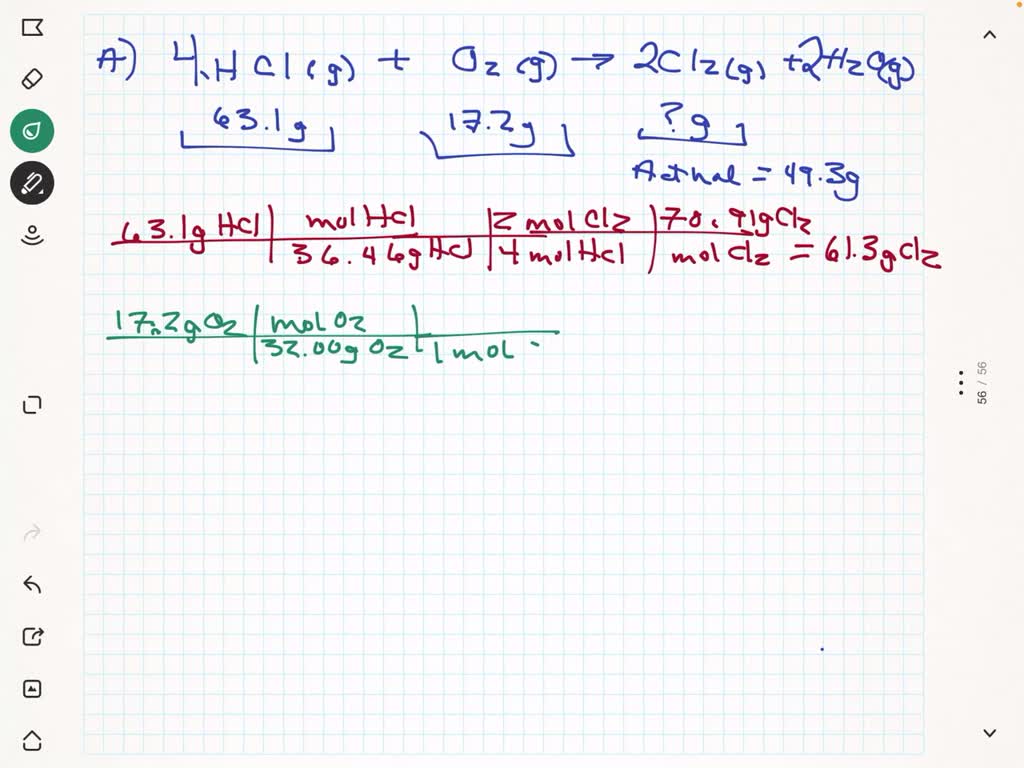 A) 4HCl(g) + O2(g) → 2Cl2(g) + 2H2O(g)
63.1g 17.2g ?g
Actual = 49.3g
63.1g HCl | mol HCl | 2 mol Cl2 | 70.91g Cl2
36.46g HCl | 4 mol HCl | mol Cl2 = 61.3g Cl2
17.2g O2 | mol O2
32.00g O2 | 1 mol
56 / 56